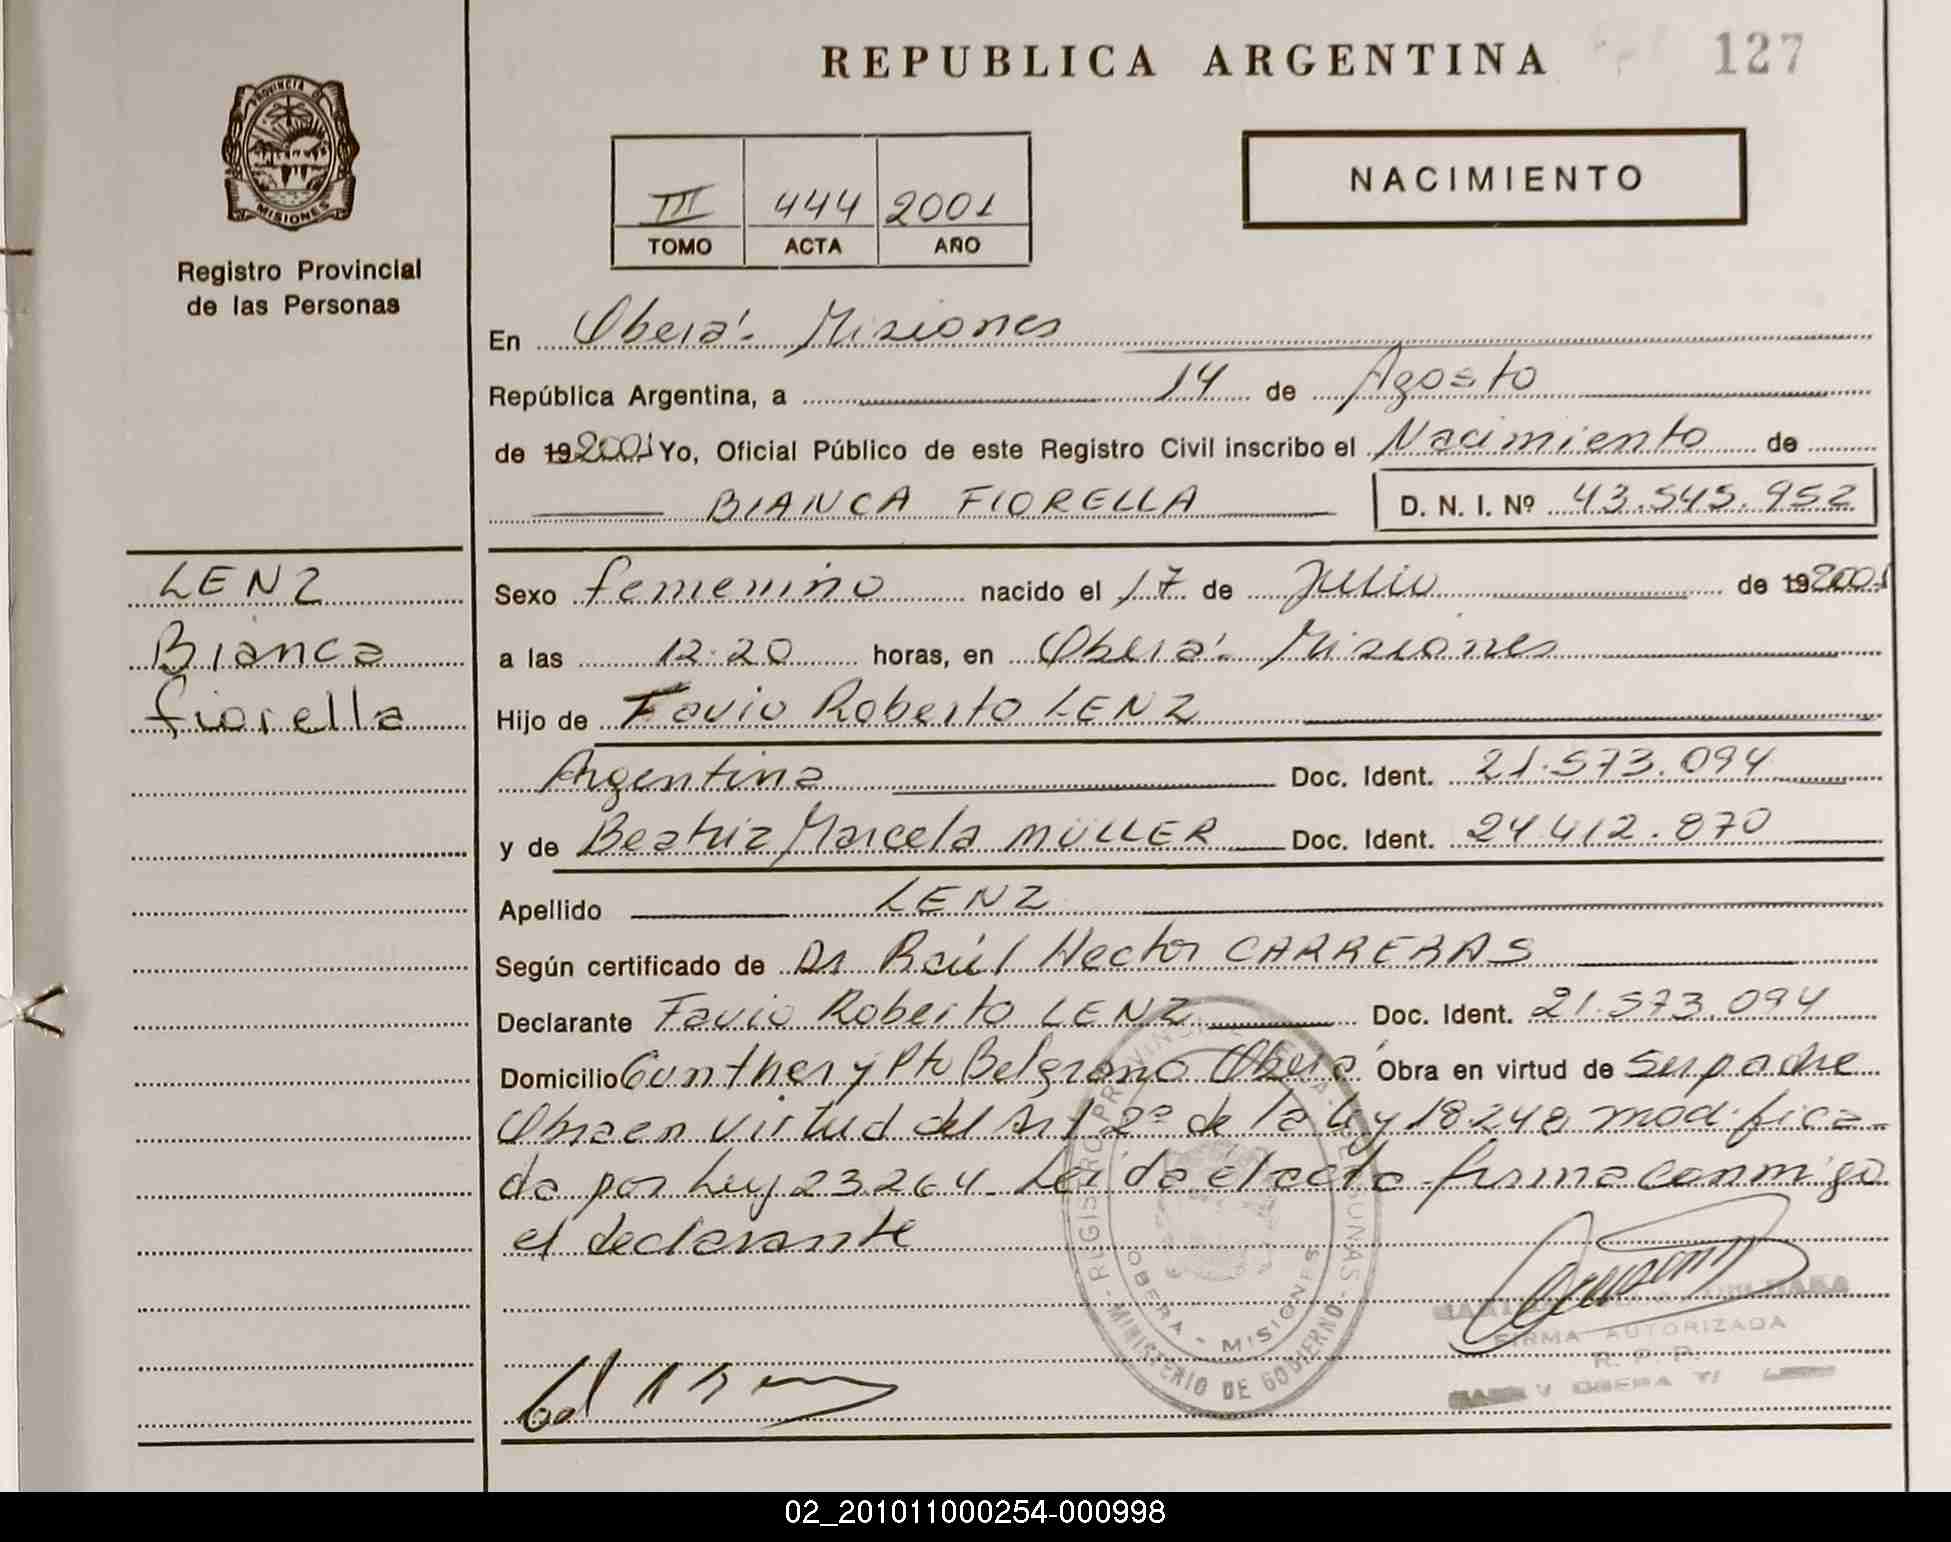 REPUBLICA ARGENTINA
127
PROVINCIA DE
MISIONES
Registro Provincial
de las Personas
III 444 2001
TOMO ACTA AÑO
NACIMIENTO
En Oberá - Misiones
República Argentina, a 14 de Agosto
de 19 2001 Yo, Oficial Público de este Registro Civil inscribo el Nacimiento de
BIANCA FIORELLA
D. N. I. Nº 43.545.952
LENZ
Bianca
fiorella
Sexo femenino nacido el 17 de Julio de 19 2001
a las 12.20 horas, en Oberá - Misiones
Hijo de Favio Roberto LENZ
Argentina Doc. Ident. 21.573.094
y de Beatriz Marcela MULLER Doc. Ident. 24.412.870
Apellido LENZ
Según certificado de Dr Raúl Hector CARRERAS
Declarante Favio Roberto LENZ Doc. Ident. 21.573.094
Domicilio Gunther y Pto Belgrano Oberá Obra en virtud de ser padre
Obra en virtud del Art 2º de la ley 18.248 modifica-
da por Ley 23.264 - Leída el acta firma conmigo
el declarante
REGISTRO PROVINCIAL DE LAS PERSONAS - MINISTERIO DE GOBIERNO -
OBERA - MISIONES
FIRMA AUTORIZADA
R. P. P.
02_201011000254-000998